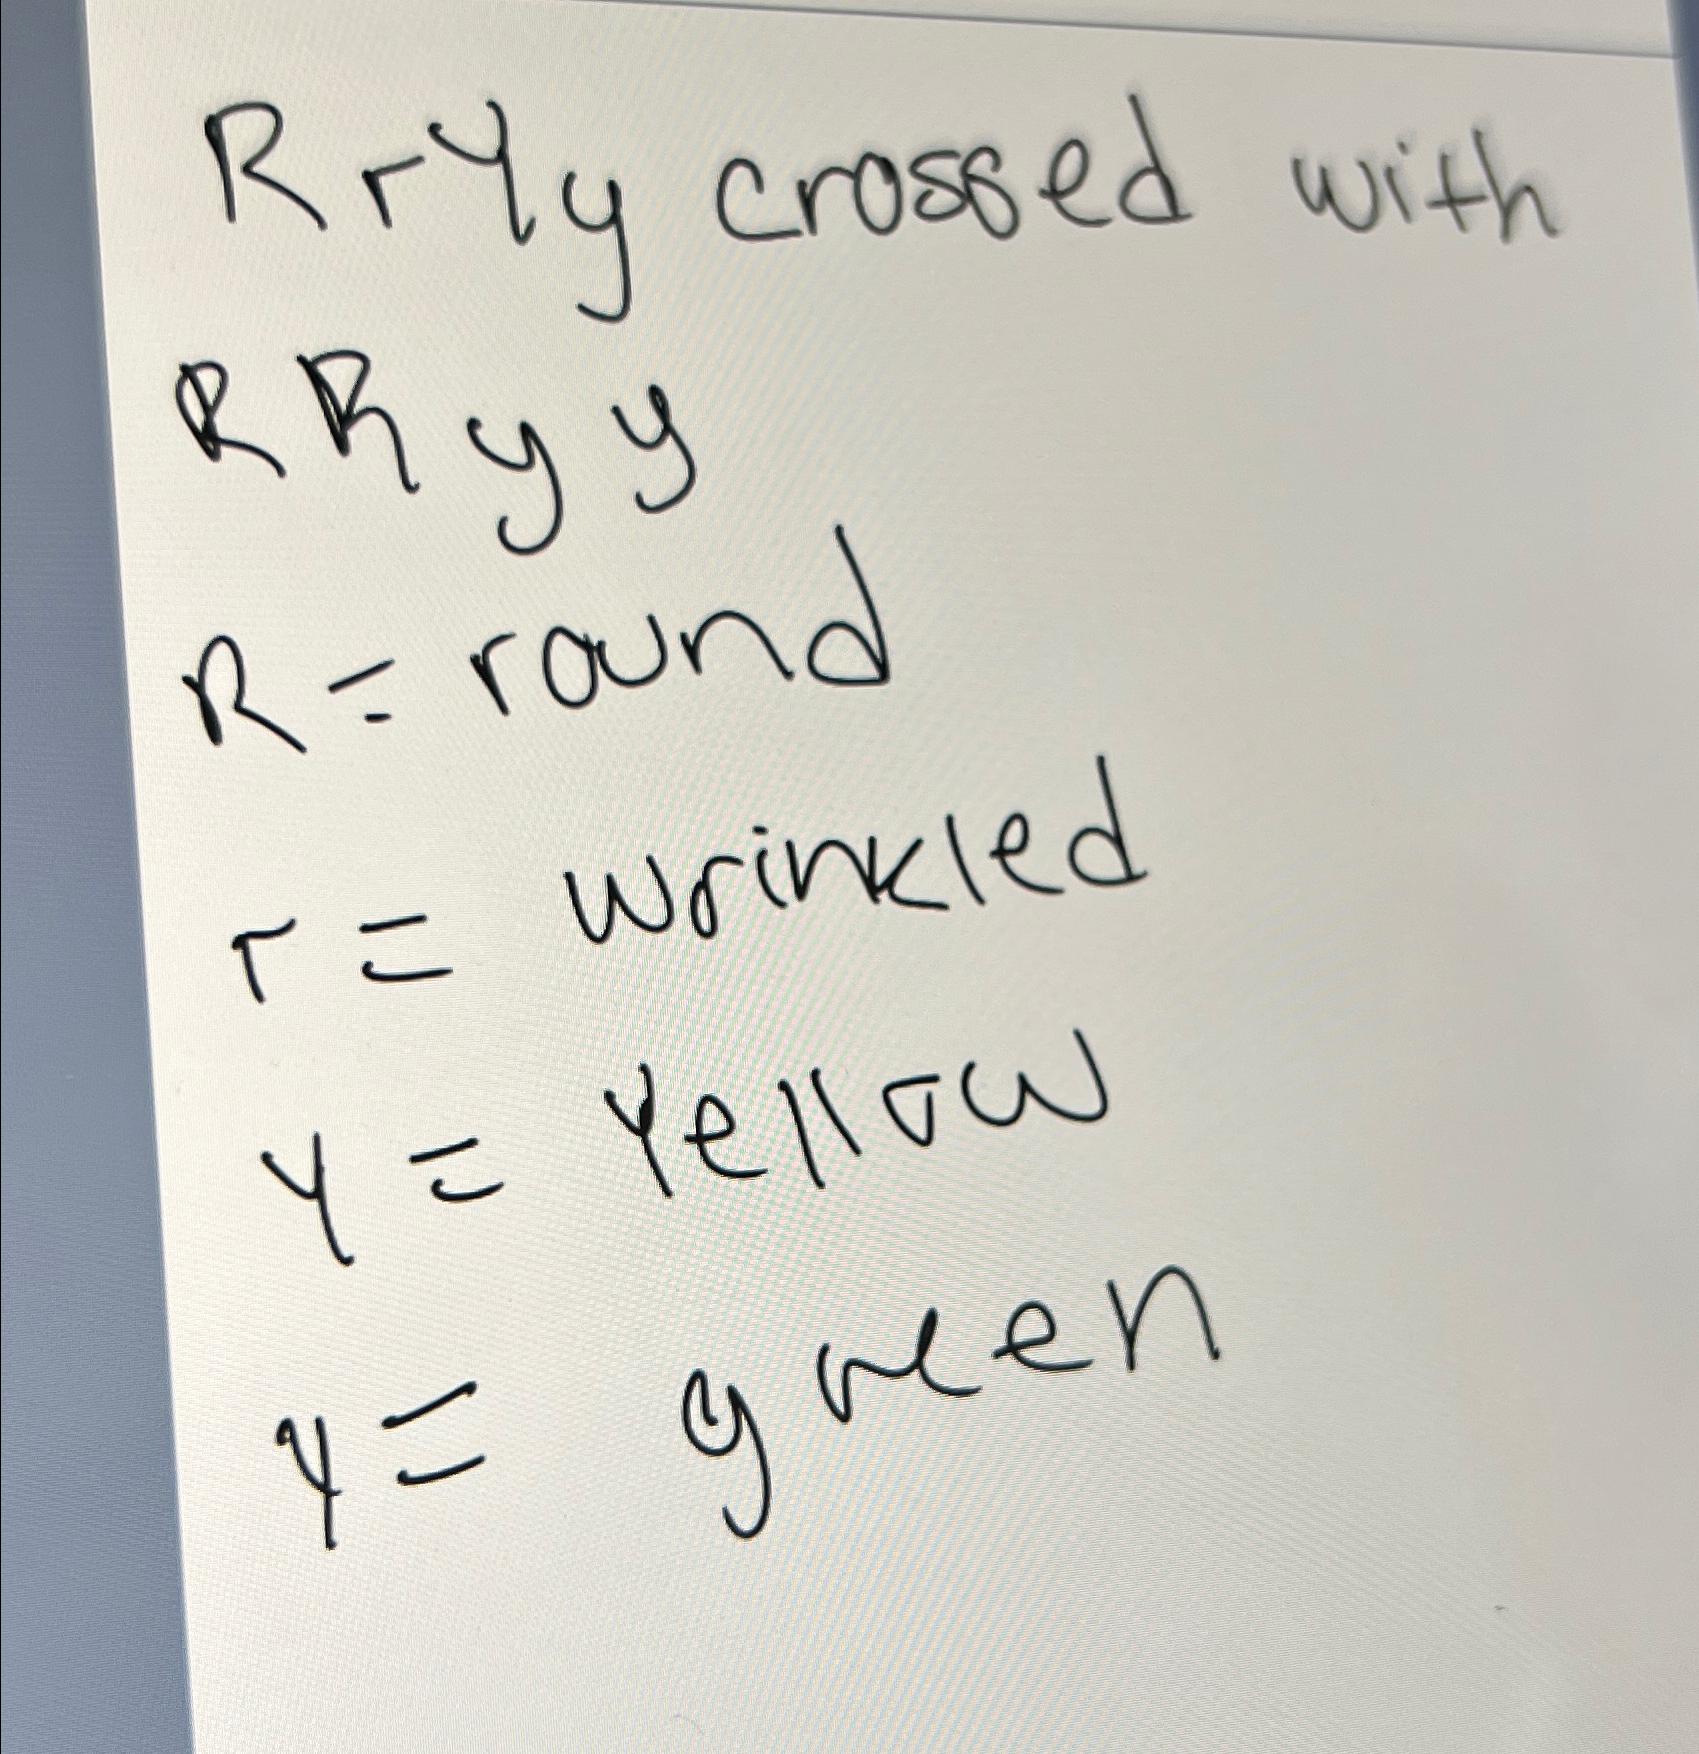 RrYy crossed with
RRyy
R = round
r = wrinkled
Y = Yellow
y = green